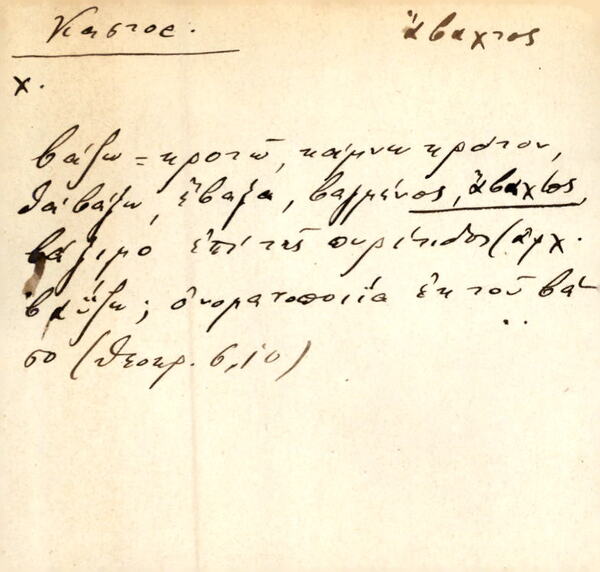 Κάστος. ἄβαχτος
χ.
βάζω = κροτῶ, κάμνω κρότον,
θὰ βάξω, ἔβαξα, βαγμένος, ἄβαχτος,
βάξιμο ἐπὶ τῆς πυρίτιδος (ἀρχ.
βαΰζω; ὀνοματοποιΐα ἐκ τοῦ βά-
σο (Θεοκρ. 6,10)